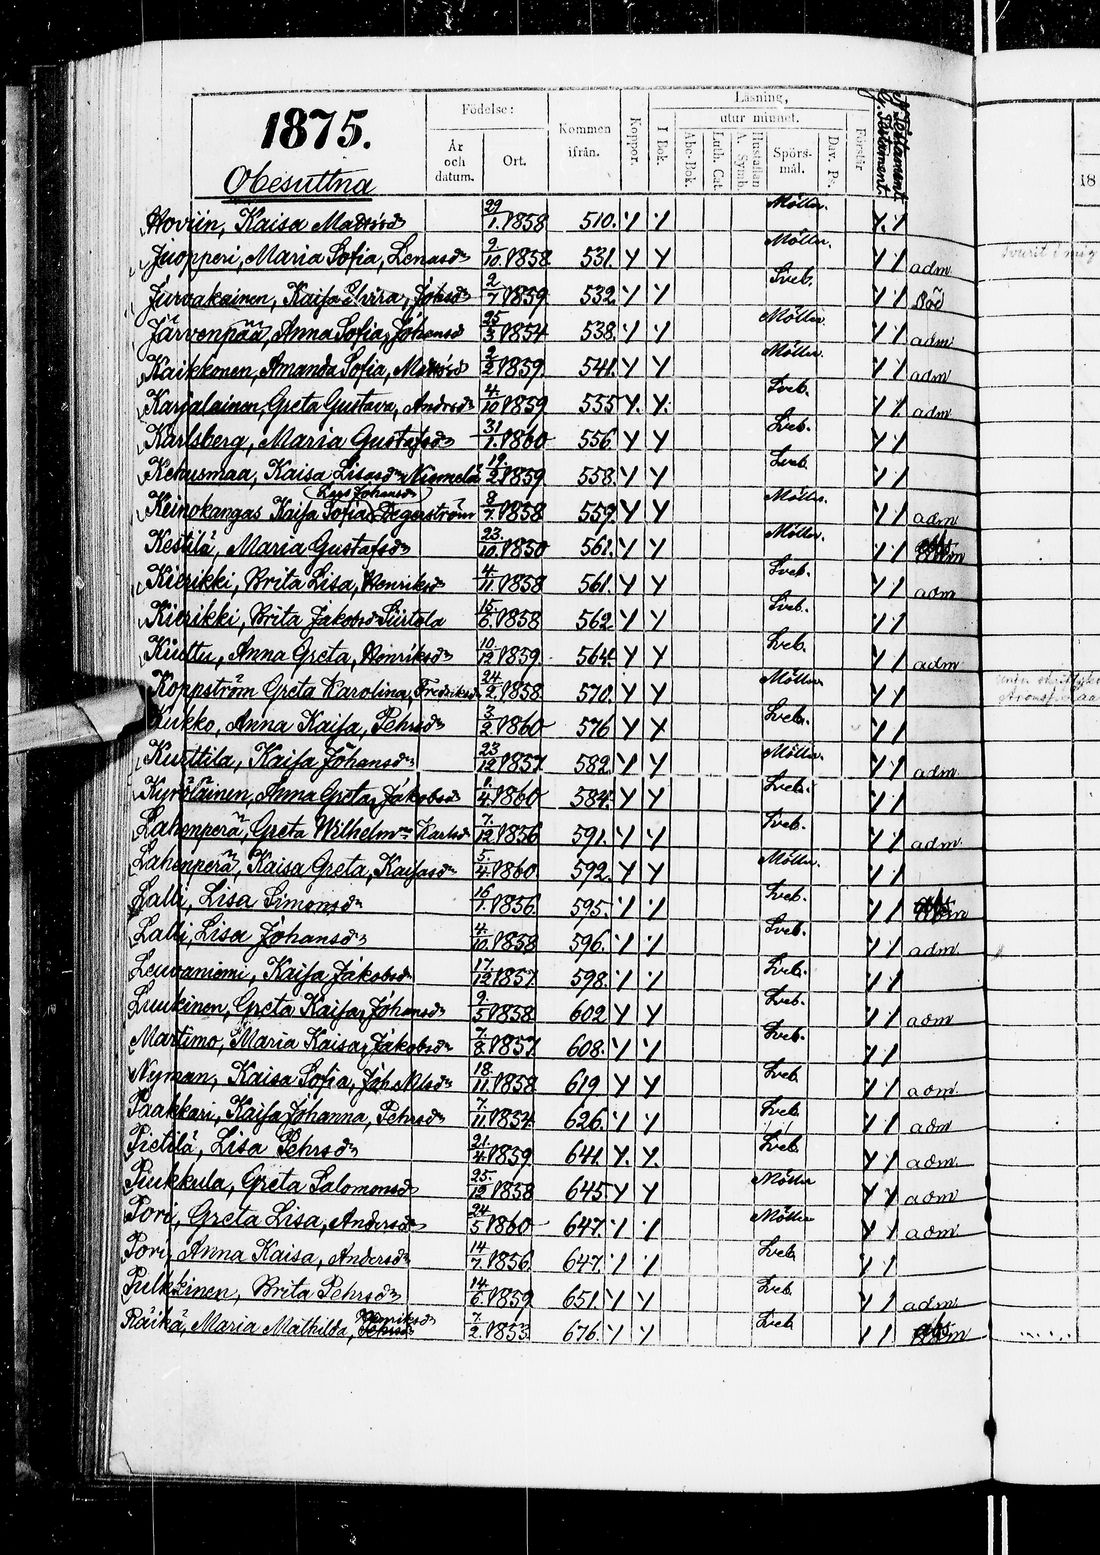 1875.
Obesuttna
Födelse:
År och datum.
Ort.
Kommen ifrån.
Koppor.
Läsning,
I Bok.
utur minnet.
Abc-Bok.
Luth. Cat.
Hustaflan A. Symb.
Spörs-mål.
Dav. Ps.
Förstår
18
Hoviin, Kaisa Matsdr 29/1 1858 510. Möller.
Juopperi, Maria Sofia, Lenasdr 9/10 1858 531. Möller. adm
Jurvakainen, Kaisa Elvira, Johsdr 2/7 1859 532 Sveb. Död
Järvenpää, Anna Sofia, Johansd 25/3 1854 538. Möller. adm
Kaikkonen, Amanda Sofia, Matsdr 2/2 1859 541. Möller. adm
Karjalainen, Greta Gustava, Andersd 4/10 1859 555 Sveb. adm
Karlsberg, Maria Gustafsdr 31/1 1860 556 Sveb.
Kehusmaa, Kaisa Lisasdr Niemelä 19/2 1859 558. Sveb
Keinokangas Kaisa Sofia Degerström 8/7 1858 559. Möller. adm
Kestilä, Maria Gustafsdr 23/10 1850 561. Möller. adm
Kierikki, Brita Lisa, Henriksdr 4/11 1858 561. Sveb. adm
Kierikki, Brita Jakobsd Siirtola 15/6 1858 562. Sveb.
Kiuttu, Anna Greta, Henriksdr 10/12 1859 564. Sveb. adm
Koppström Greta Karolina, Fredriksd 24/2 1858 570. Möller.
Kukko, Anna Kaisa, Pehrsdr 3/2 1860 576 Sveb.
Kurttila, Kaisa Johansdr 23/12 1857 582. Möller. adm
Kyröläinen, Anna Greta, Jakobsd 1/4 1860 584. Sveb.
Lahenperä, Greta Wilhelmna Karlsd 7/12 1856 591. Sveb. adm
Lahenperä, Kaisa Greta, Kaisasd 5/4 1860 592. Möller.
Lalli, Lisa Simonsdr 16/7 1856 595. Sveb.
Lalli, Lisa Johansdr 4/10 1858 596. Sveb. adm.
Leuvaniemi, Kaisa Jakobsdr 17/12 1857 598. Sveb.
Luukinen, Greta Kaisa, Johansdr 9/5 1858 602 Sveb. adm
Martimo, Maria Kaisa, Jakobsdr 7/8 1857 608. Sveb.
Nyman, Kaisa Sofia, Joh Nilsdr 18/11 1858 619 Sveb adm.
Paakkari, Kaisa Johanna, Pehrsdr 7/11 1854 626. Sveb adm
Pietilä, Lisa Pehrsdr 21/4 1859 641. Sveb. adm.
Piukkula, Greta Salomonsd 25/12 1858 645 Möller adm
Pori, Greta Lisa, Andersdr 24/5 1860 647. Möller adm
Pori, Anna Kaisa, Andersdr 14/7 1856 647. Sveb
Pulkkinen, Brita Pehrsdr 14/6 1859 651. Sveb. adm
Räikä, Maria Mathilda, Henriksdr 7/2 1853 676. Sveb